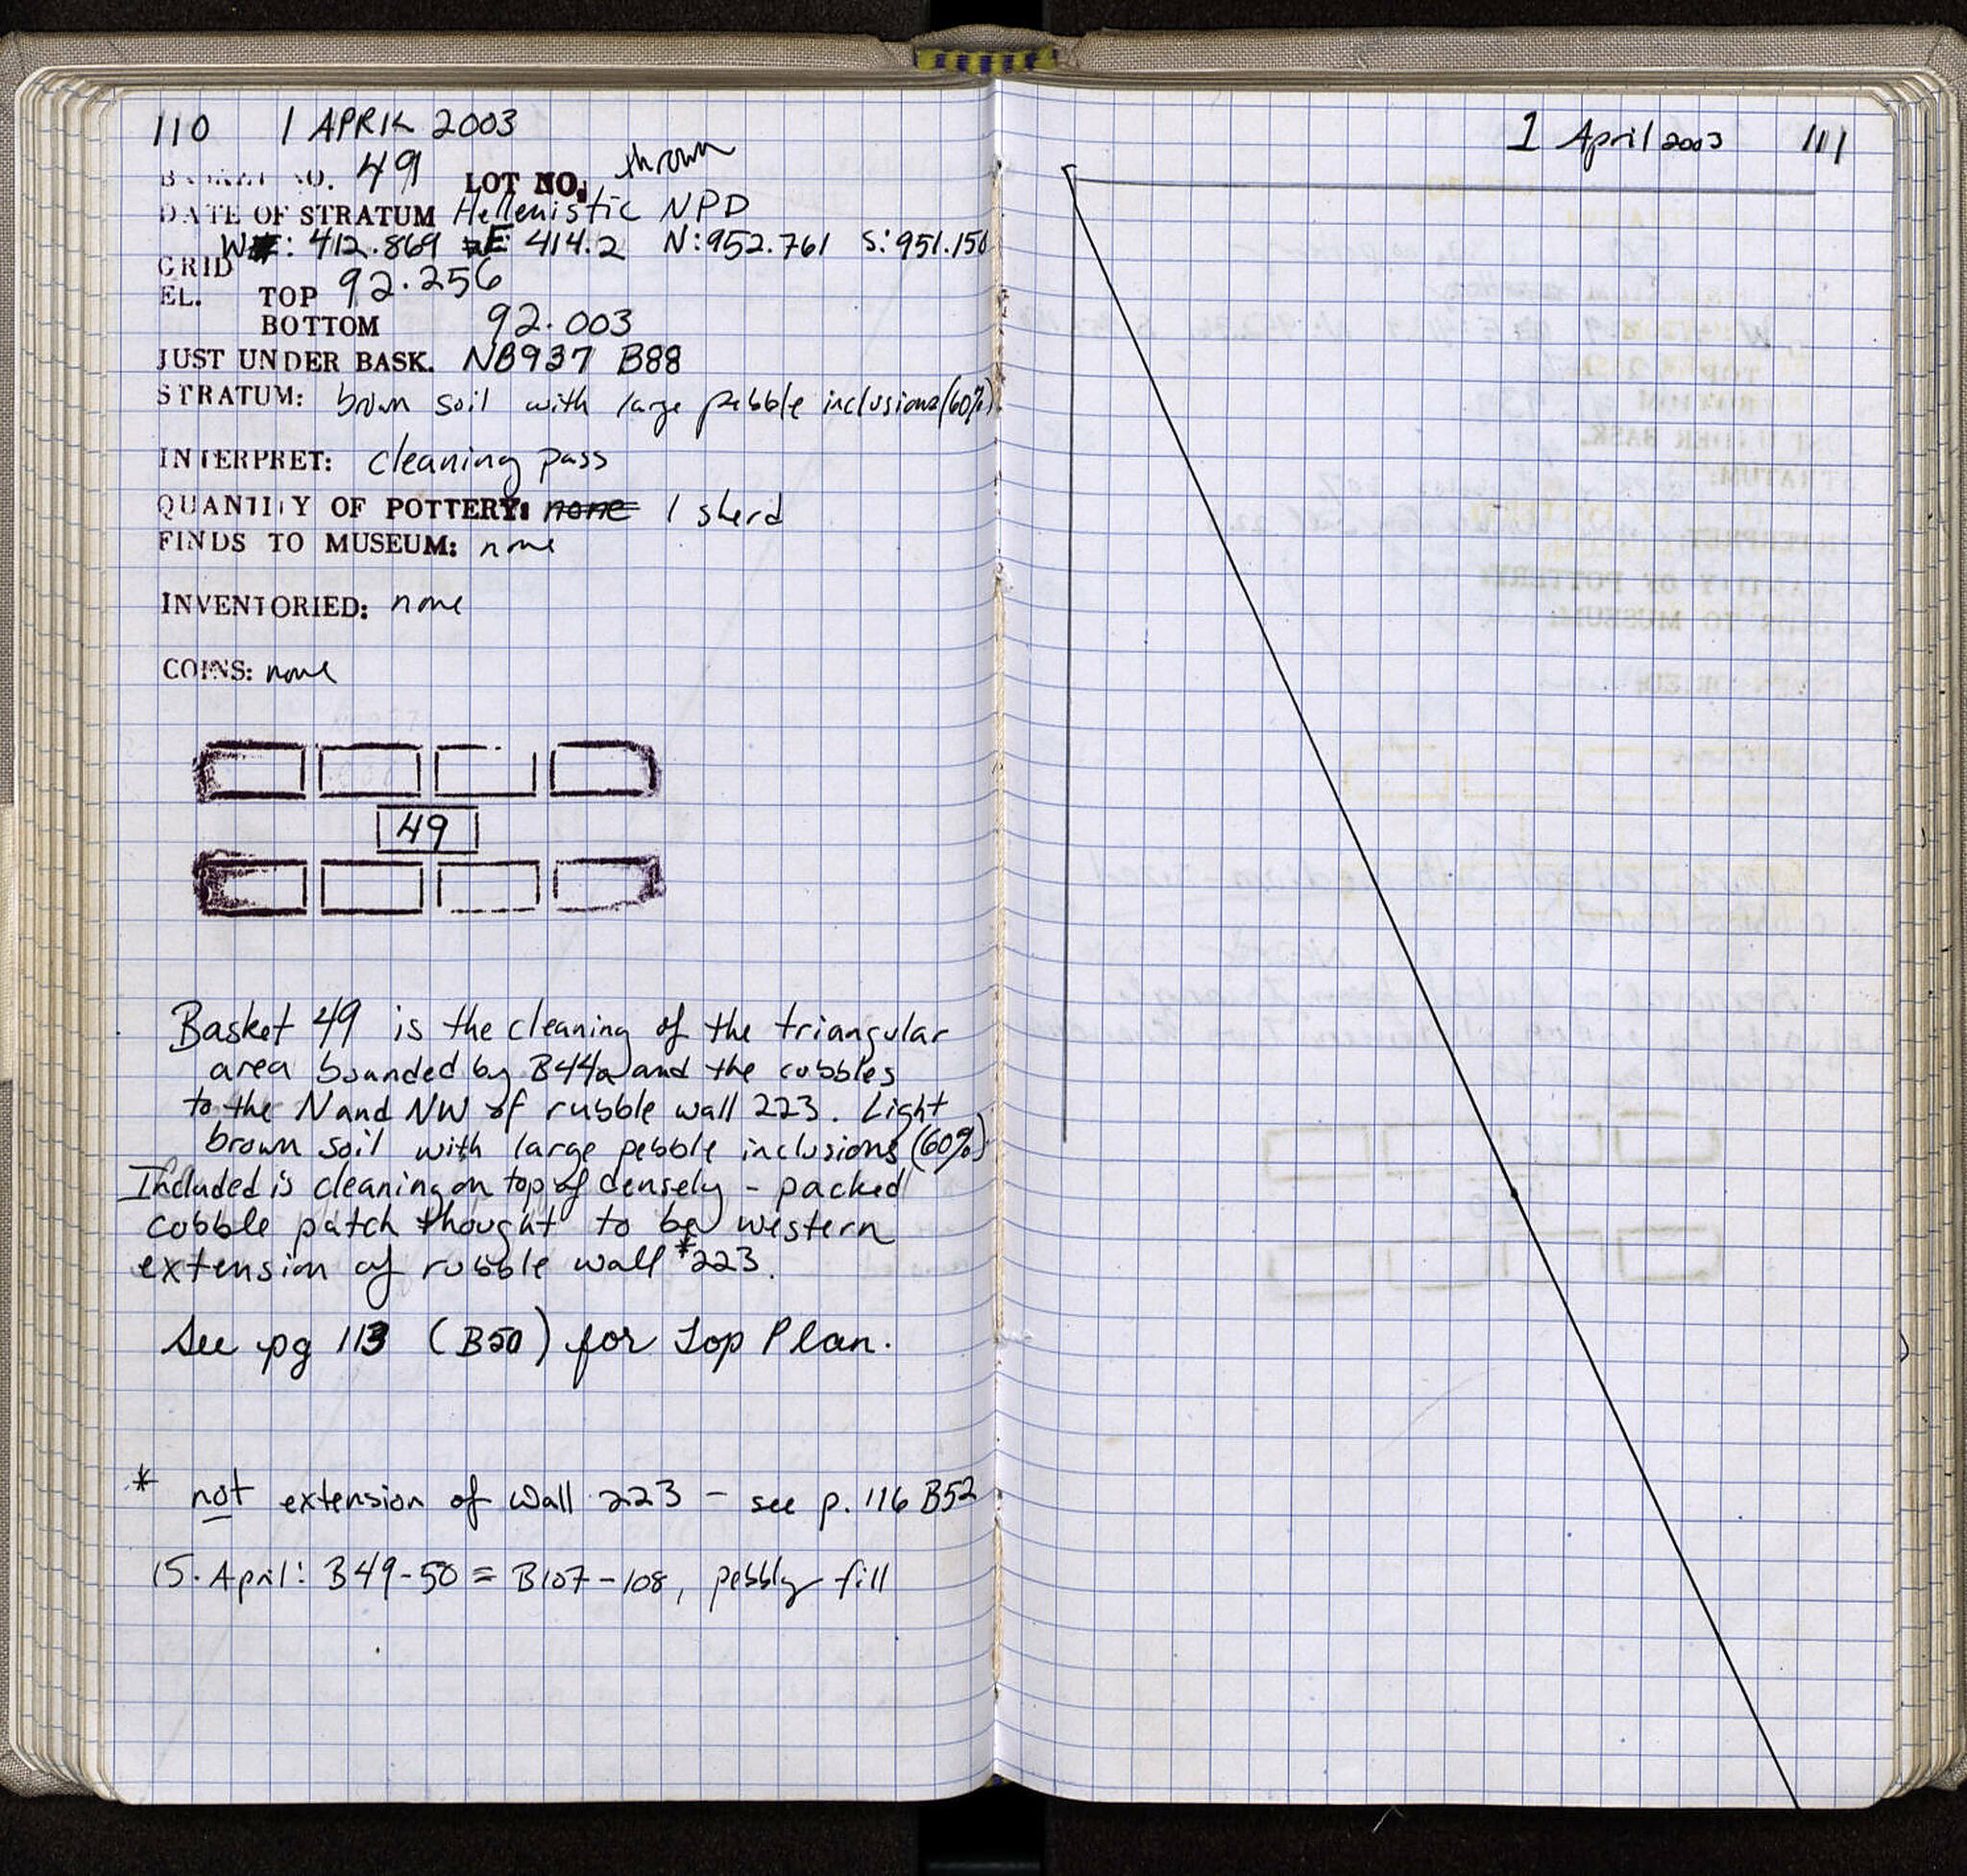 110 1 APRIL 2003
BASKET NO. 49 LOT NO. thrown
DATE OF STRATUM Hellenistic NPD
W: 412.869 E: 414.2 N: 952.761 S: 951.150
GRID
EL. TOP 92.256
BOTTOM 92.003
JUST UNDER BASK. NB937 B88
STRATUM: brown soil with large pebble inclusions (60%)
INTERPRET: cleaning pass
QUANTITY OF POTTERY: none 1 sherd
FINDS TO MUSEUM: none
INVENTORIED: none
COINS: none
49
Basket 49 is the cleaning of the triangular
area bounded by B44a and the cobbles
to the N and NW of rubble wall 223. Light
brown soil with large pebble inclusions (60%)
Included is cleaning on top of densely - packed
cobble patch thought to be western
extension of rubble wall *223.
See pg 113 (B50) for Top Plan.
* not extension of wall 223 - see p. 116 B52
15. April: B49-50 = B107-108, pebbly fill
1 April 2003 111